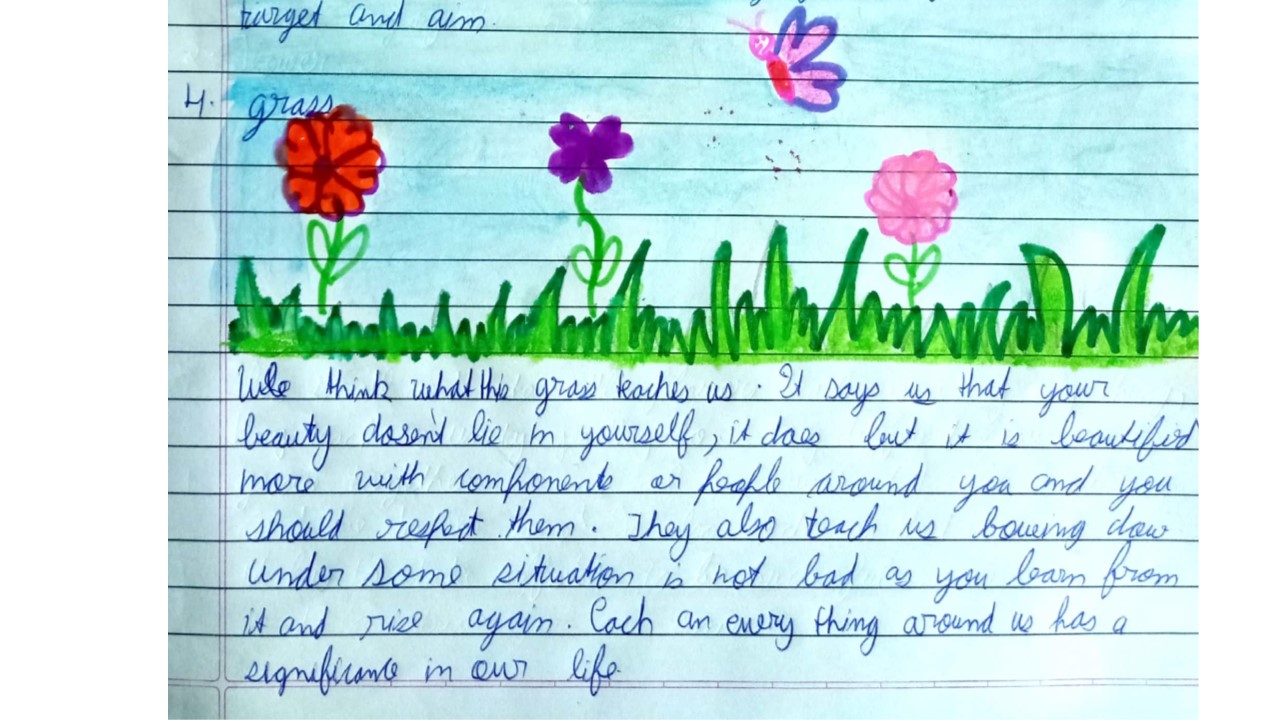 target and aim.
4. grass
We think what this grass teaches us. It says us that your
beauty dosen't lie in yourself, it does but it is beautified
more with components or people around you and you
should respect them. They also teach us bowing dow
under some situation is not bad as you learn from
it and rise again. Each an every thing around us has a
significance in our life.